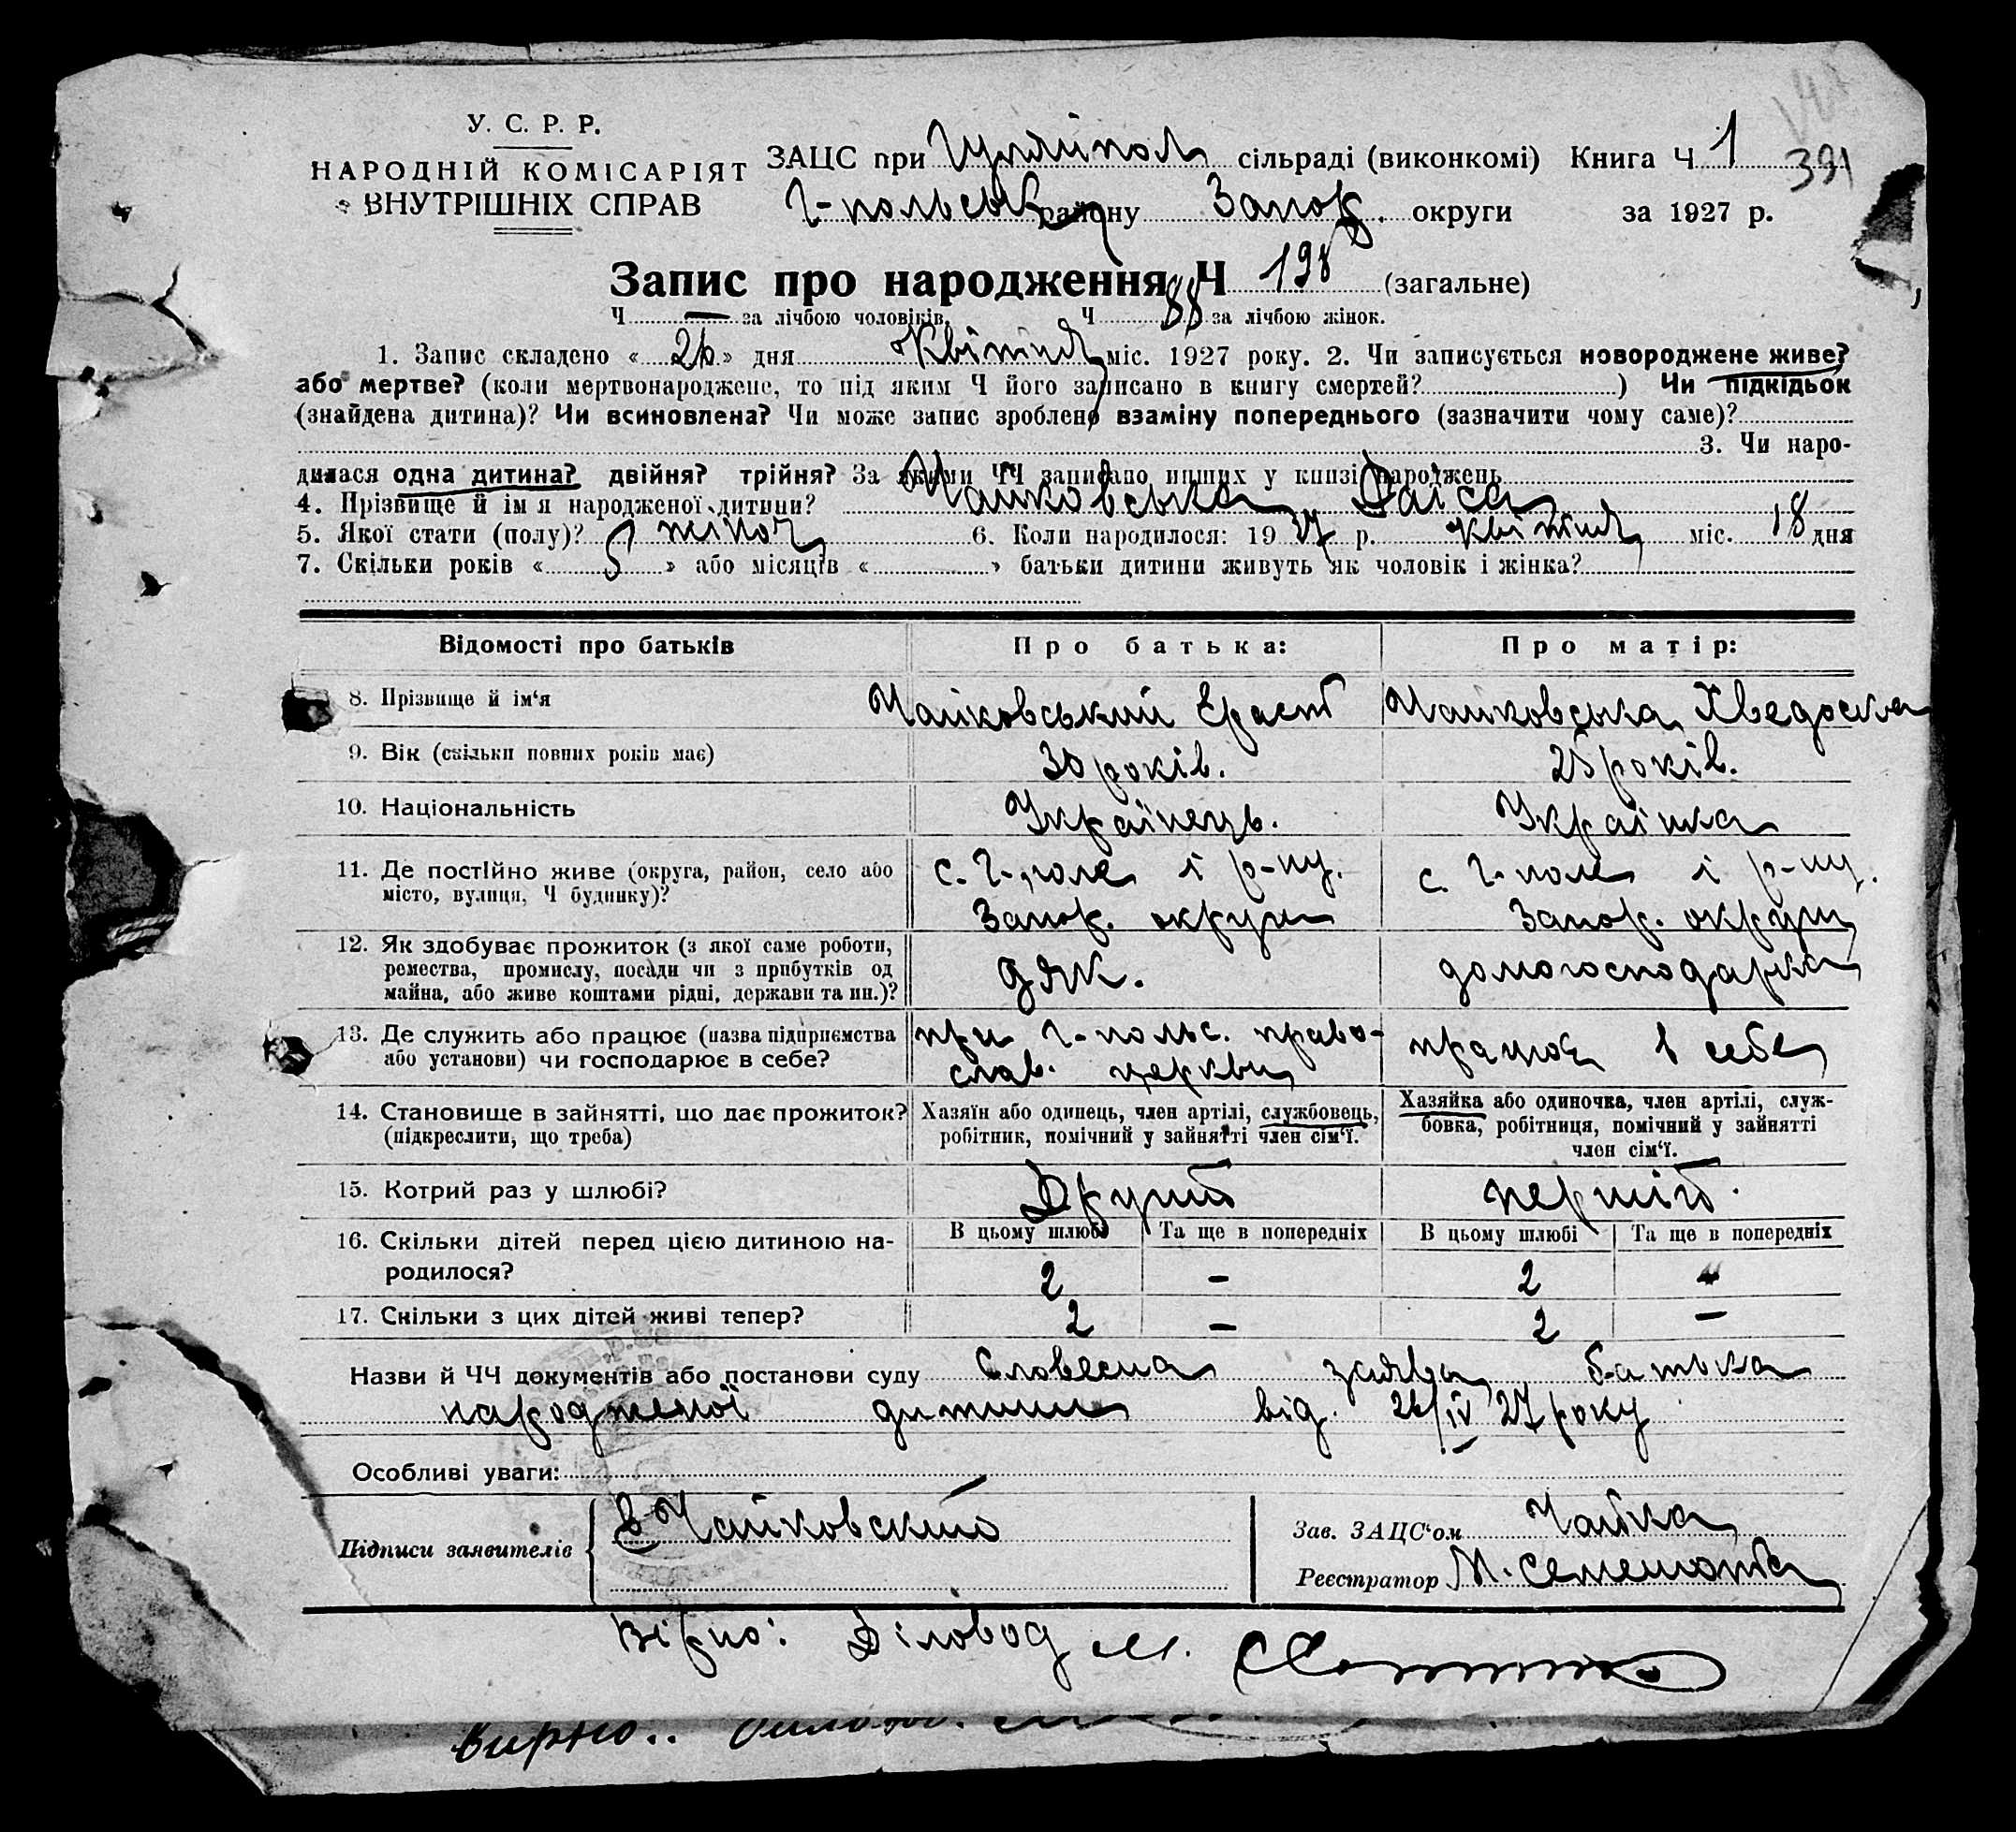 У. С. Р. Р.
НАРОДНІЙ КОМІСАРІЯТ
ВНУТРІШНІХ СПРАВ
ЗАЦС при Гуляйпол сільраді (виконкомі) Книга Ч 1
391
Г-польськ району Запор. округи за 1927 р.
Запис про народження Ч 198 (загальне)
Ч — за лічбою чоловіків, Ч 88 за лічбою жінок.
1. Запис складено « 26 » дня Квітня міс. 1927 року. 2. Чи записується новороджене живе?
або мертве? (коли мертвонароджене, то під яким Ч його записано в книгу смертей? ) Чи підкідьок
(знайдена дитина)? Чи всиновлена? Чи може запис зроблено взаміну попереднього (зазначити чому саме)?
3. Чи наро-
дилася одна дитина? двійня? трійня? За якими ЧЧ записано инших у книзі народжень
4. Прізвище й ім я народженої дитини? Чайковська Раїса
5. Якої стати (полу)? жіноч 6. Коли народилося: 19 27 р. квітня міс. 18 дня
7. Скільки років « 5 » або місяців « » батьки дитини живуть як чоловік і жінка?
Відомості про батьків Про батька: Про матір:
8. Прізвище й ім'я Чайковський Ераст Чайковська Хведоска
9. Вік (скільки повних років має) 30 років. 25 років.
10. Національність Українець. Українка
11. Де постійно живе (округа, район, село або с. Г-поле і р-ну. с. Г-поле і р-ну.
місто, вулиця, Ч будинку)? Запор. округи Запор. округи
12. Як здобуває прожиток (з якої саме роботи,
ремества, промислу, посади чи з прибутків од дяк. домогосподарка
майна, або живе коштами рідні, держави та ин.)?
13. Де служить або працює (назва підприємства при Г-польс. право- працює в себе
або установи) чи господарює в себе? слав. церкви
14. Становище в зайнятті, що дає прожиток? Хазяїн або одинець, член артілі, службовець, Хазяйка або одиночка, член артілі, служ-
(підкреслити, що треба) робітник, помічний у зайнятті член сім'ї. бовка, робітниця, помічний у зайнятті
член сім'ї.
15. Котрий раз у шлюбі? Другий перший.
16. Скільки дітей перед цією дитиною на- В цьому шлюбі Та ще в попередніх В цьому шлюбі Та ще в попередніх
родилося? 2 – 2 –
17. Скільки з цих дітей живі тепер? 2 – 2 –
Назви й ЧЧ документів або постанови суду Словесна заява батька
народженої дитини від. 26/IV 27 року
Особливі уваги:
Підписи заявителів Е Чайковский
Зав. ЗАЦС'ом Чайка
Реєстратор М.
Вірно: Діловод М.
Вирно..